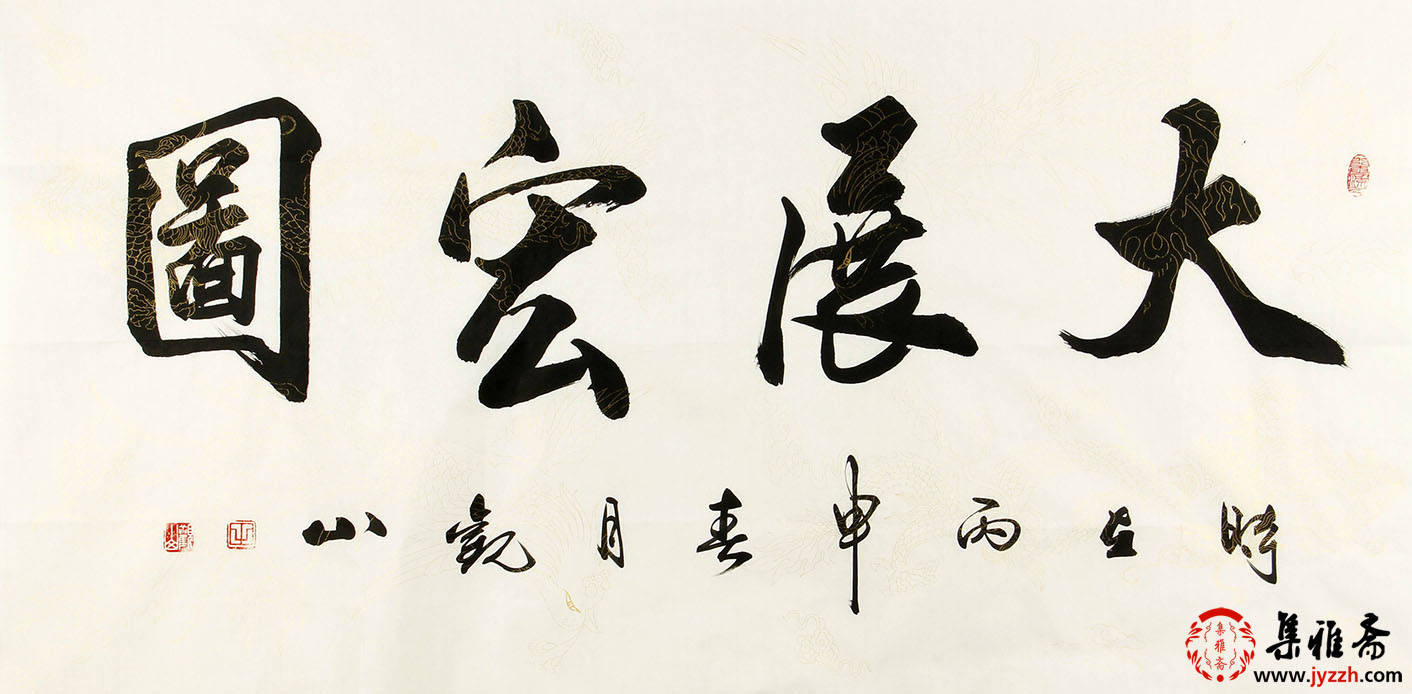 大展宏圖
時在丙申春月觀山
集雅斋
集雅斋
www.jyzzh.com